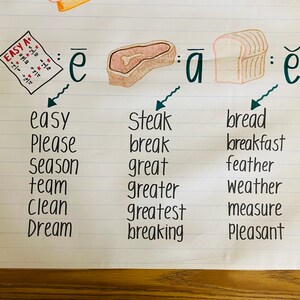 EASY A+
: ē : ā : ĕ
easy Steak bread
Please break breakfast
season great feather
team greater weather
Clean greatest measure
Dream breaking Pleasant